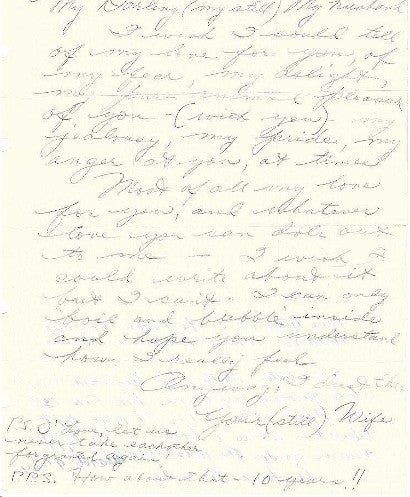 My Darling (my still) My husband
I wish I could tell
of my love for you, of
my fear, my delight,
my pure animal pleasure
of you - (with you) my
jealousy, my pride, my
anger at you, at times
Most of all my love
for you, and whatever
love you can dole out
to me - I wish I
could write about it
but I can't. I can only
boil and bubble inside
and hope you understand
how I really feel
Anyway, I lust thee
Your (still) Wife
P.S. O'Love, let us
never take each other
for granted again!
P.P.S. How about that - 10 years!!